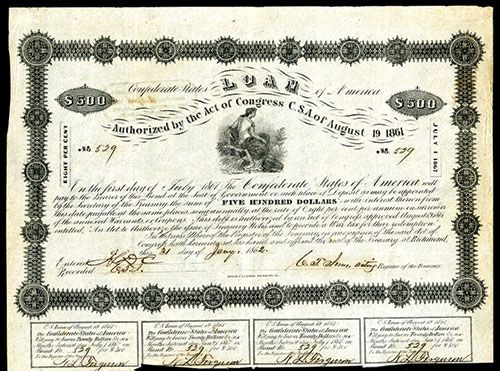 LOAN
Confederate States of America
$500 $500
Authorized by the Act of Congress C.S.A. of August 19 1861
EIGHT PER CENT
JULY 1 1867
No. 529 No. 529
On the first day of July 1867 The Confederate States of America will
pay to the Bearer of this Bond at the Seat of Government or such place of Deposit as may be appointed
by the Secretary of the Treasury the sum of FIVE HUNDRED DOLLARS, with interest thereon from
this date payable at the same place semi annually at the rate of Eight per cent per annum on surrender
of the annexed Warrants or Coupons. This debt is authorized by an act of Congress approved August
entitled, An Act to Authorize the issue of Treasury Notes and to provide a War tax for their redemption
In testimony Whereof the Register of the Treasury, in pursuance of the said Act of
Congress hath hereunto set his hand and affixed the seal of the Treasury, at Richmond,
Entered this 31 day of Jany. 1862.
Recorded acting Register of the Treasury
C S Loan of August 19 1861
The Confederate States of America
Twenty Dollars
529
Ferguson
C S Loan of August 19 1861
The Confederate States of America
Twenty Dollars
529
Ferguson
C S Loan of August 19 1861
The Confederate States of America
Twenty Dollars
529
Ferguson
C S Loan of August 19 1861
The Confederate States of America
Twenty Dollars
529
Ferguson